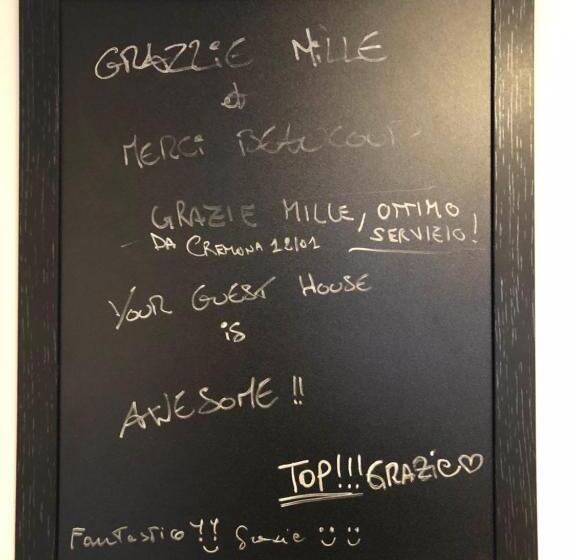 GRAZZIE MILLE
et
MERCI BEAUCOUP
GRAZIE MILLE, OTTIMO
SERVIZIO!
DA CREMONA 12/01
YOUR GUEST HOUSE
is
AWESOME !!
TOP!!! GRAZIE♡
Fantastico !! Grazie